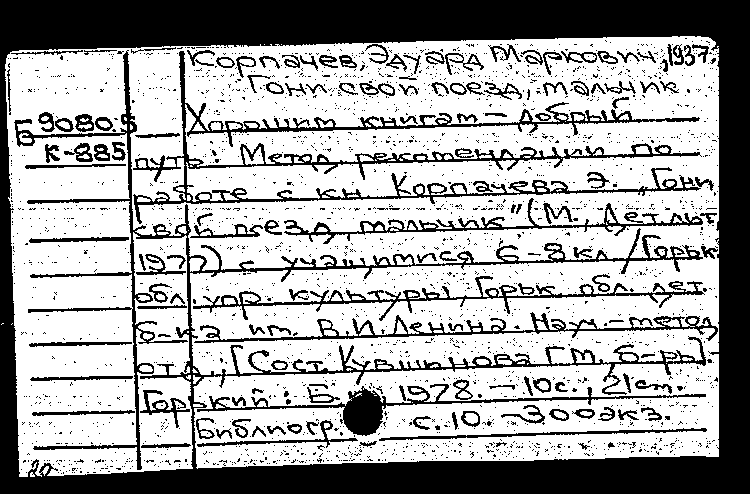 Корпачев, Эдуард Маркович, 1937.
Гони свой поезд, мальчик.
Б9080.5
К-885
Хорошим книгам – добрый
путь: Метод. рекомендации по
работе с кн. Корпачева Э. „Гони
свой поезд, мальчик" (М., Дет.лит,
1977) с учащимися 6-8 кл. / Горьк.
обл. упр. культуры, Горьк. обл. дет.
б-ка им. В.И. Ленина. Науч.-метод.
отд.; [Сост. Кувшинова Г.М., б-рь].-
Горький: Б. 1978. – 10с.; 21см.
Библиогр. с. 10. – 300экз.